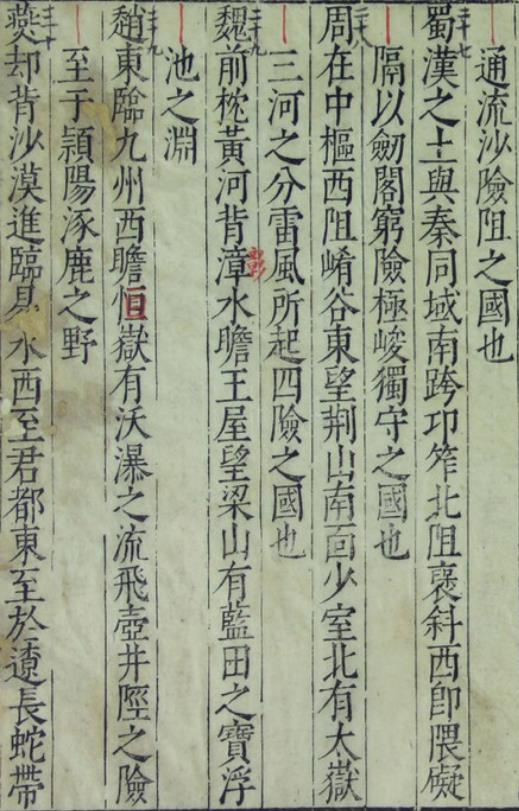 通流沙險阻之國也
蜀漢之土與秦同域南跨卭笮北阻褒斜西卽隈礙
隔以劒閣窮險極峻獨守之國也
周在中樞西阻崤谷東望荆山南面少室北有太嶽
三河之分雷風所起四險之國也
魏前枕黃河背漳水瞻王屋望梁山有藍田之寶浮
池之淵
趙東臨九州西瞻恒嶽有沃瀑之流飛壺井陘之險
至于頴陽涿鹿之野
燕却背沙漠進臨易水西至君都東至於遼長蛇帶